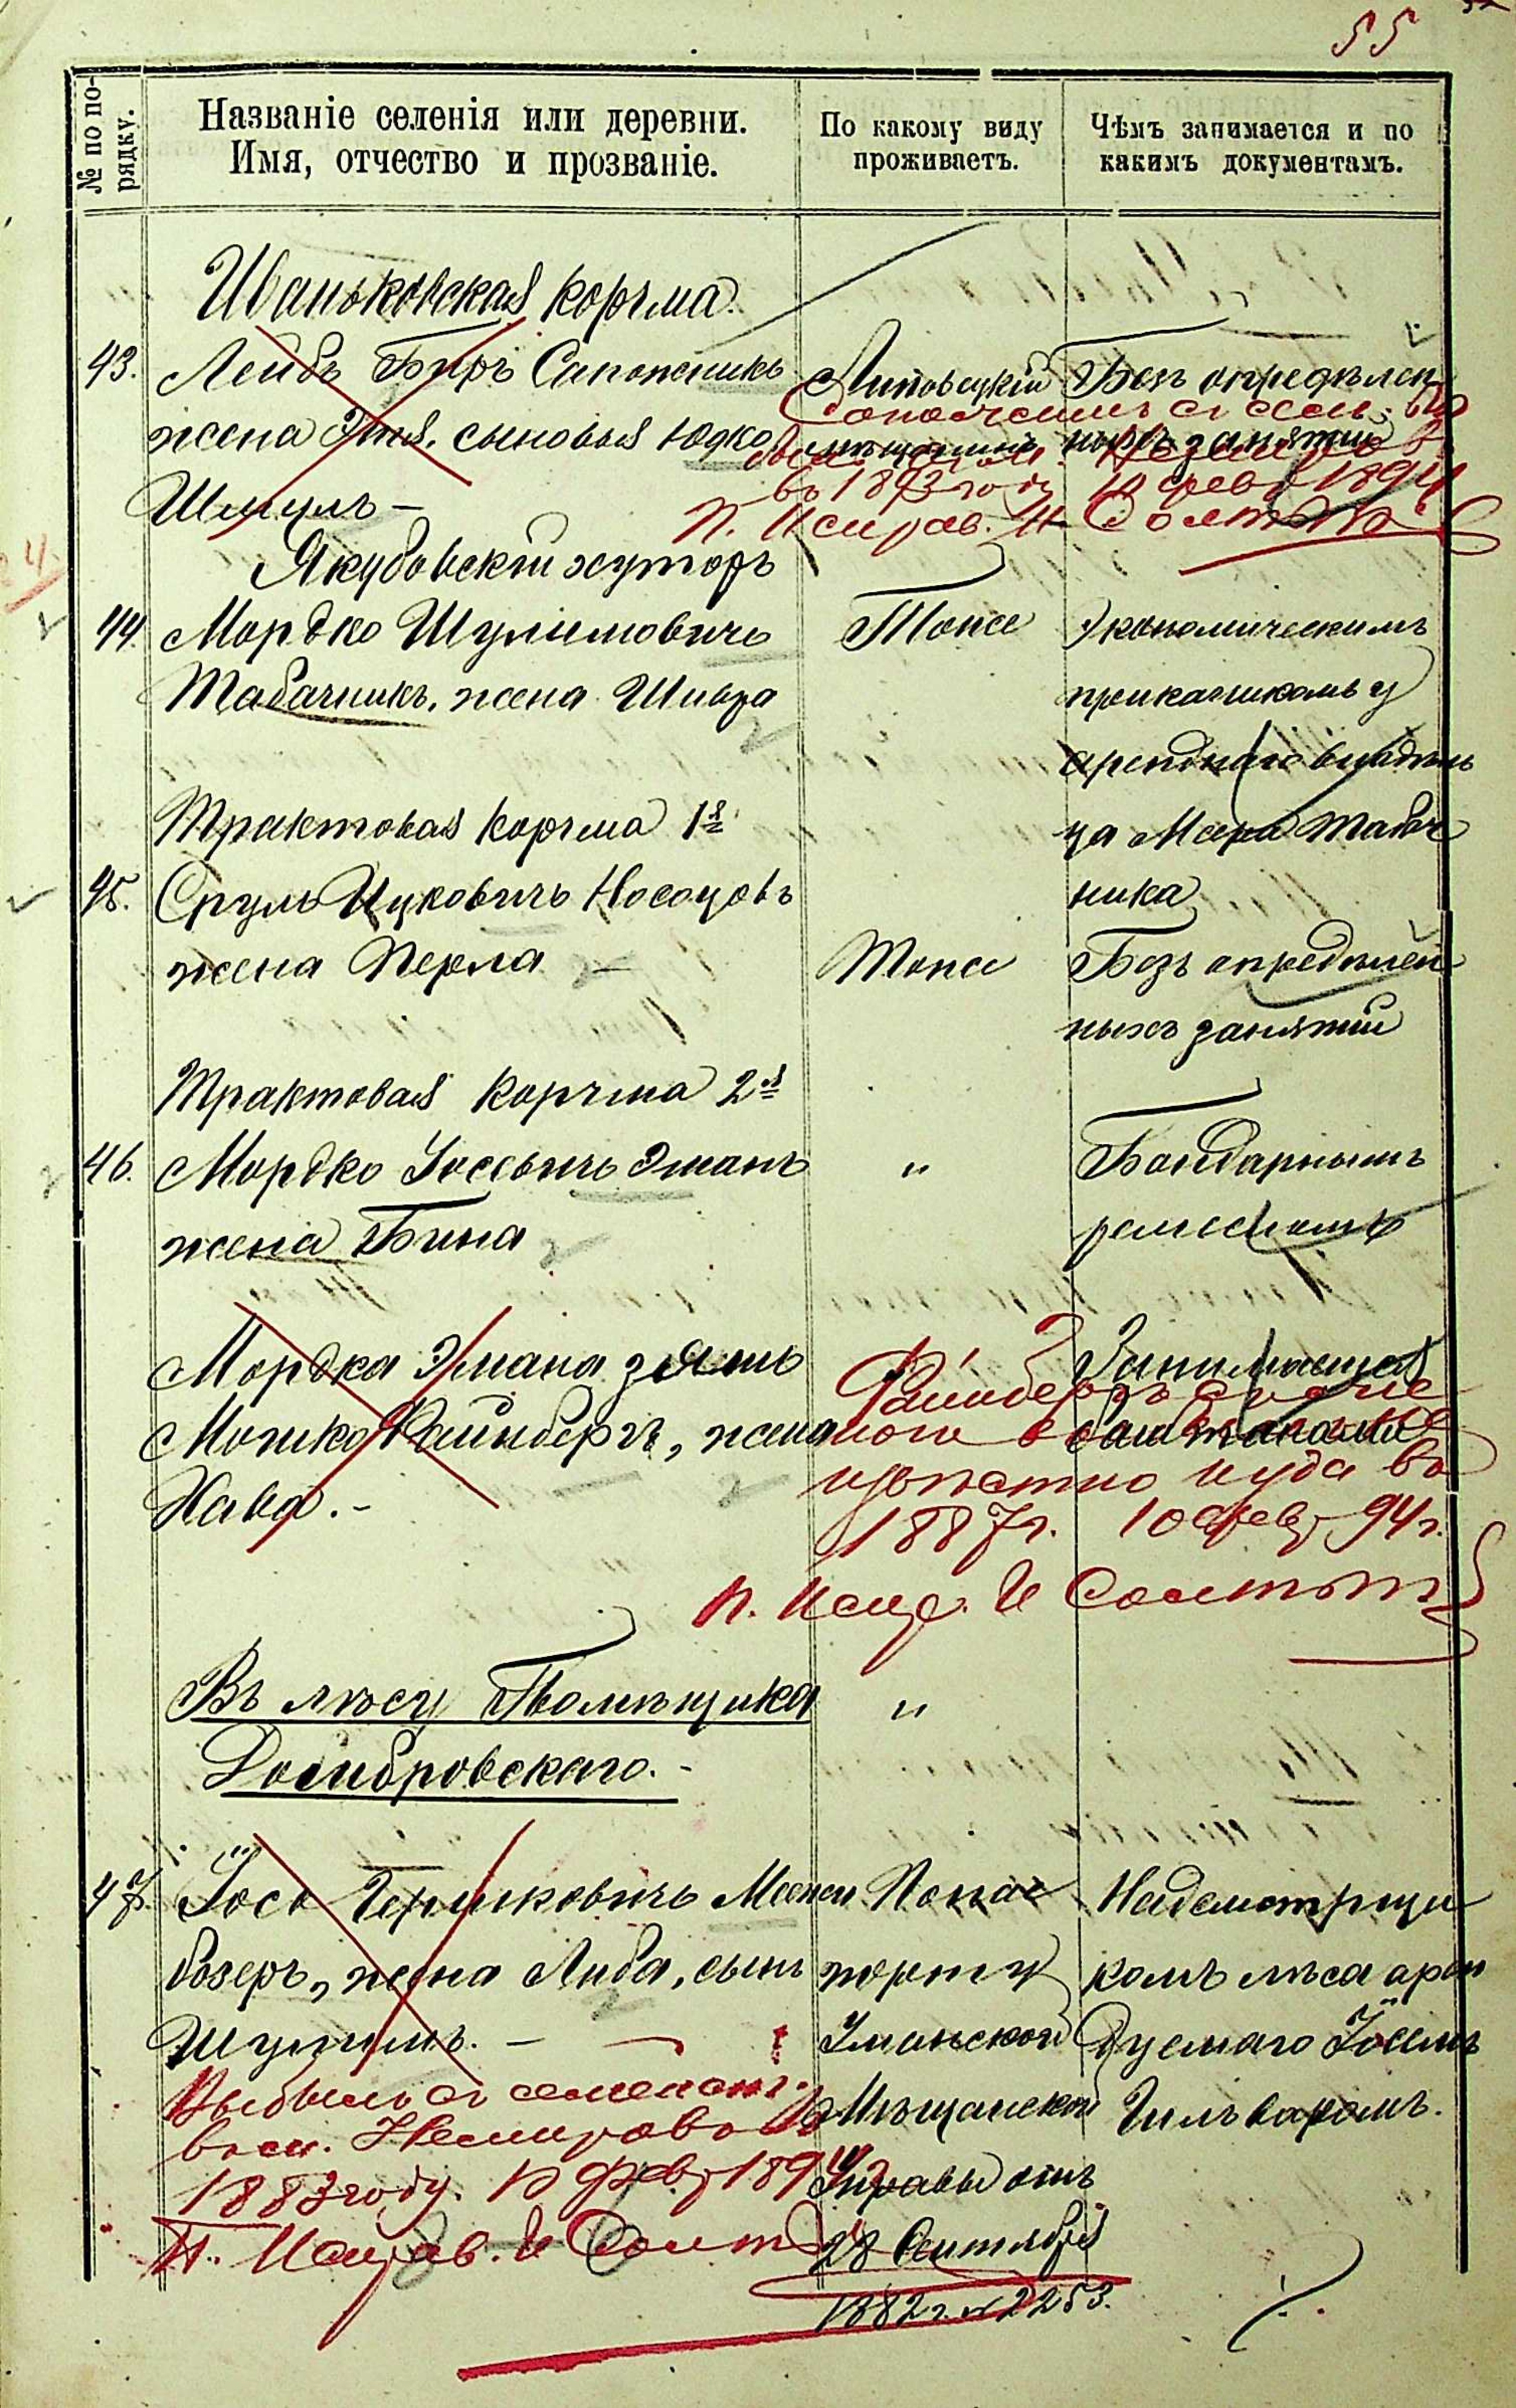 55
№ по по-
рядку.
Названіе селенія или деревни.
Имя, отчество и прозваніе.
По какому виду
проживаетъ.
Чѣмъ занимается и по
какимъ документамъ.
Иваньковская корчма
43. Лейбъ Беръ Сапожникъ
жена Этя, сыновья Юдко
Шмуль –
Липовецкій
мѣщанинъ
Безъ опредѣлен
ныхъ занятій
въ 1893 году 10 февр 1894
П. Исправ. И
Якубовскій хуторъ
44. Мордко Шулимовичъ
Табачникъ, жена Шивра
Тоже
Экономическимъ
прикащикомъ у
арендного владѣль
ца Меера Табач
ника
Трактовая корчма 1я
45. Сруль Ицковичъ
жена Перла –
Тоже
Безъ опредѣлен
ныхъ занятій
Трактовая корчма 2я
46. Мордко Іосевичъ Эманъ
жена Бина
"
Бондарнымъ
ремесломъ
Мордка Эмана зять
Мошко Файнбергъ, жена
Хава. -
Занимается
баштанами
Файнбергъ
извѣстно куда въ
1887 г. 10 февр 94 г.
П. Испр. И
Въ лѣсу Помѣщика
Домбровскаго. -
"
47. Іось Гершковичъ Межи
бозеръ, жена Либа, сынъ
Шулимъ. –
По пас
порту
Уманской
Мѣщанской
Управы отъ
28 Сентября
1882 г. № 2253.
Надсмотрщи
комъ лѣса арен
дуемаго Іоселемъ
Гильваромъ.
Выбылъ съ семействомъ
въ м. Немировъ въ
1883 году. 10 февр 1894
П. Исправ. И